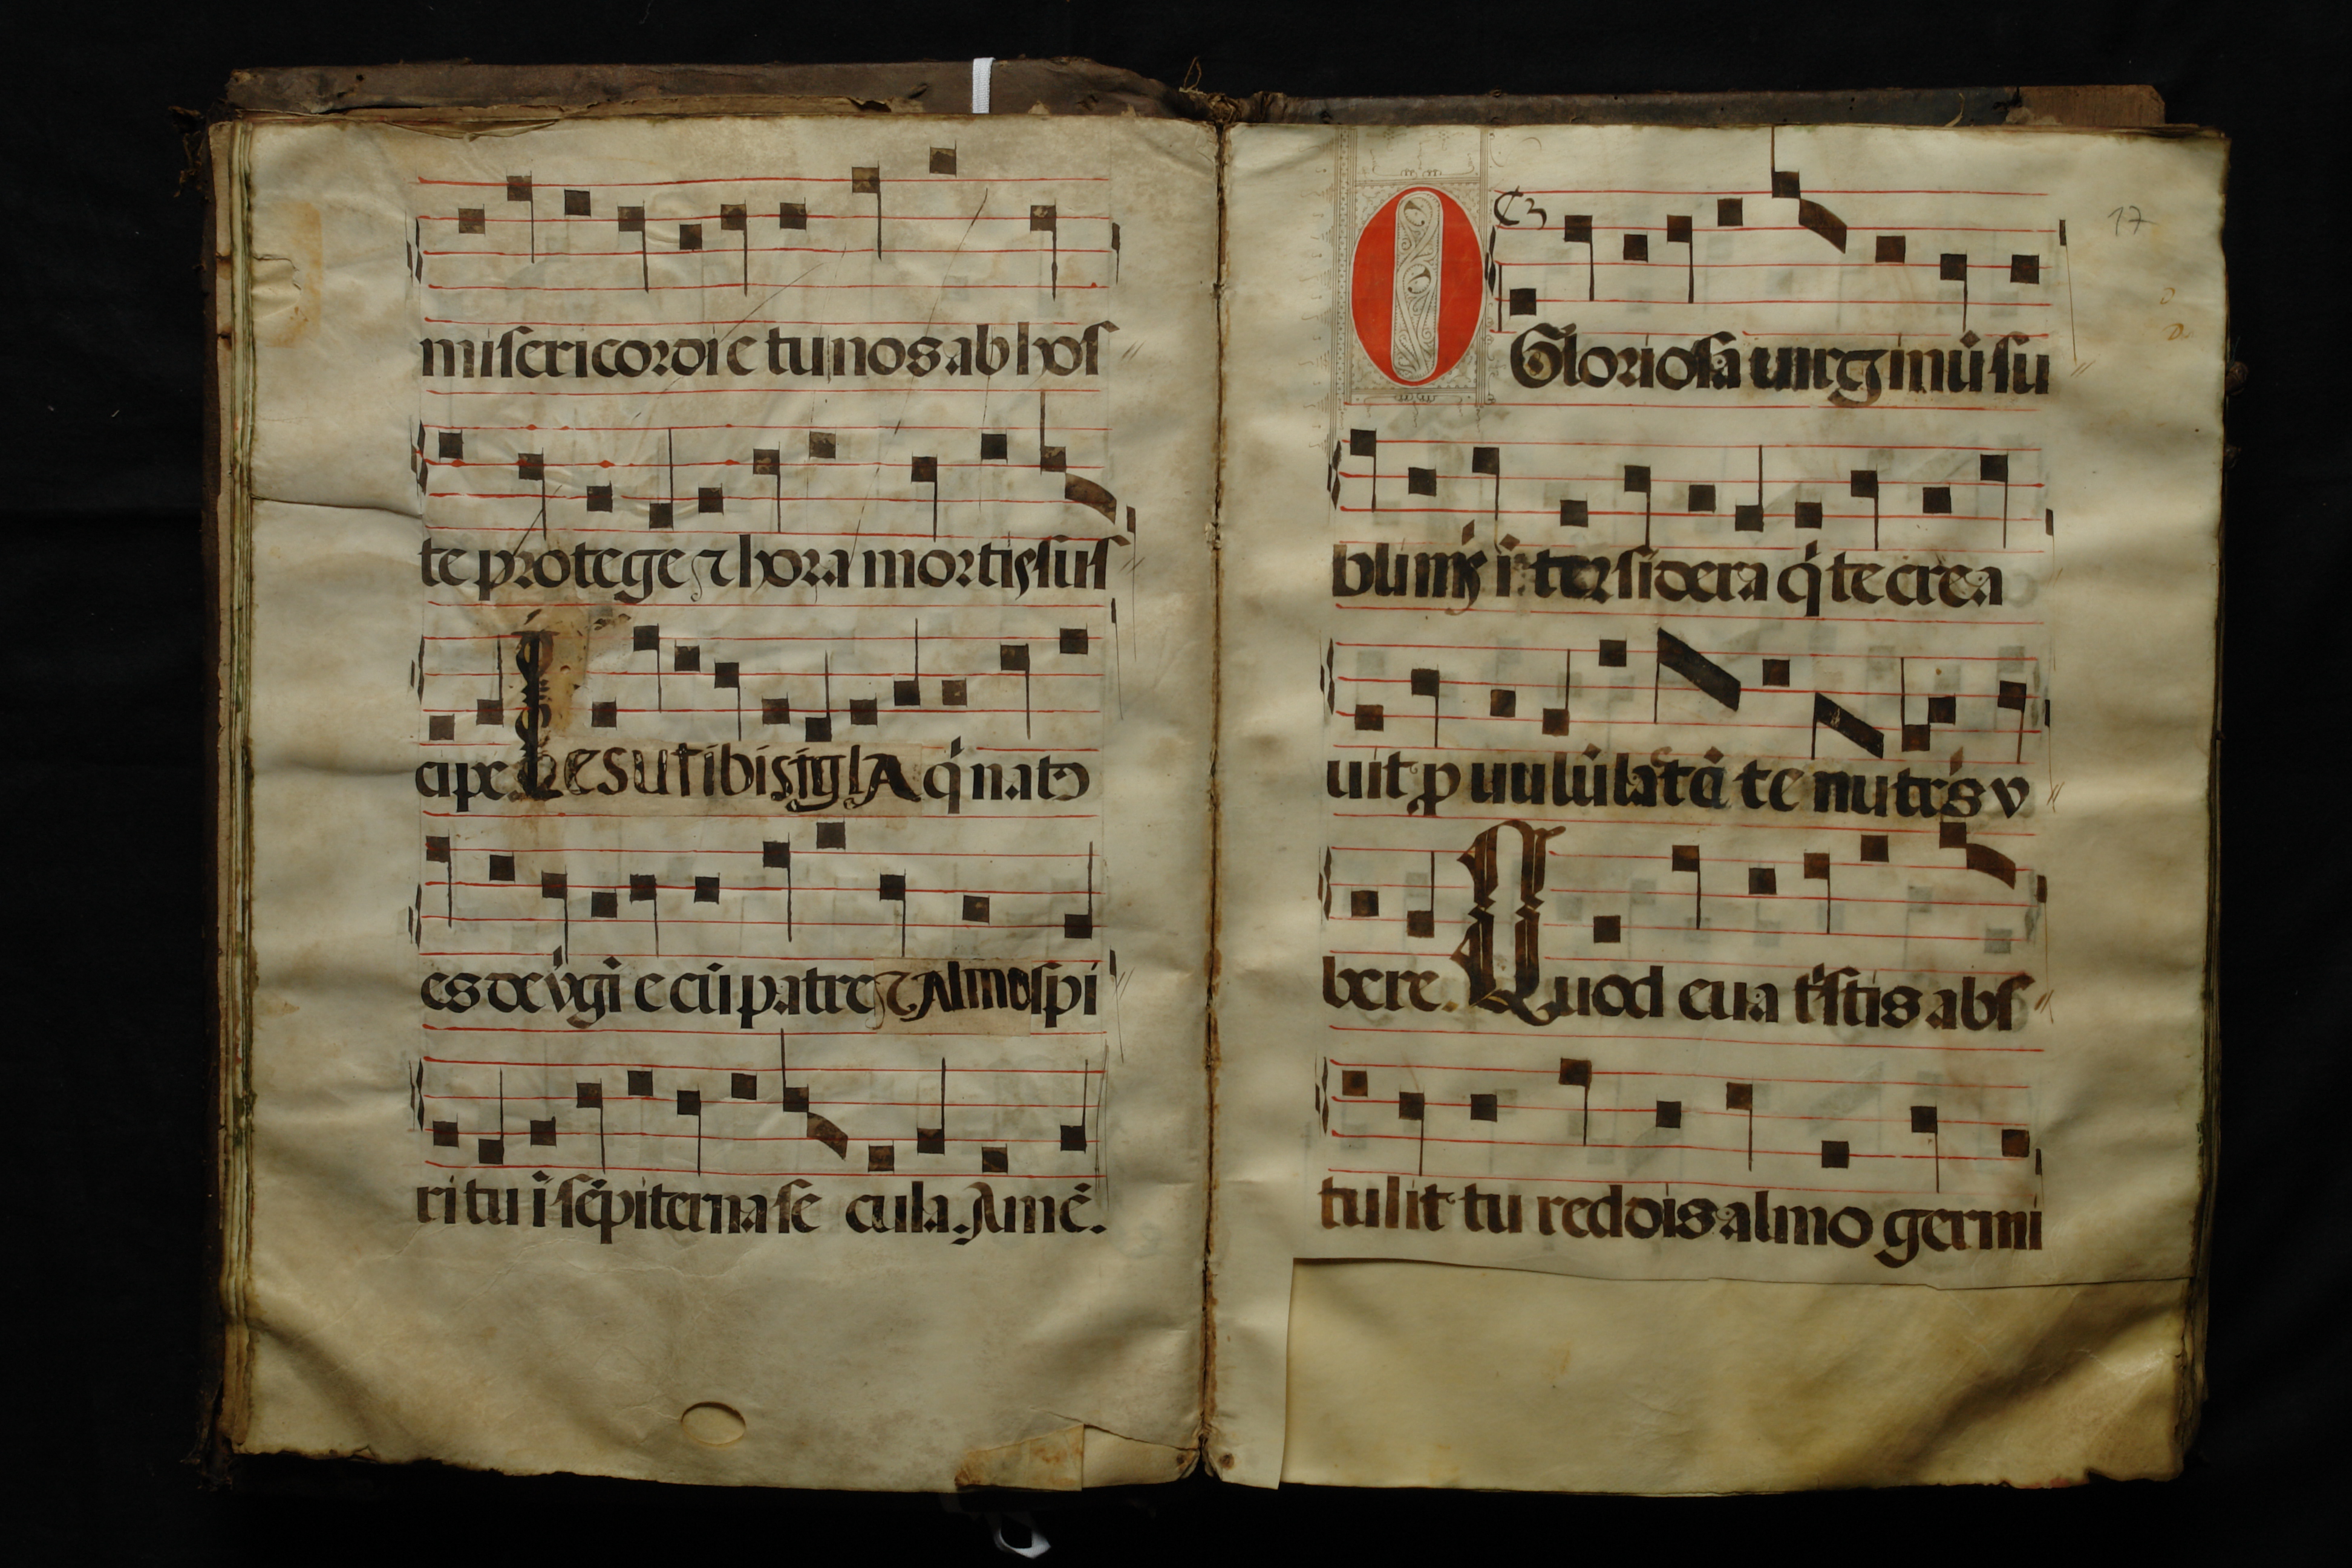 misericordie tu nos ab hos
te protege ⁊ hora mortis sus
cipe Iesu tibi sit glA q̇ nato
es de v̇gī e cū patre ⁊ Almo spi
ritu ī sēpiterna se cula. Amē.
17
O Gloriosa uirginū su
blimis īter sidera q̇ te crea
uit ꝑuulū lactā te nutris v
bere. Quod eua tͥstis abs
tulit tu reddis almo germi